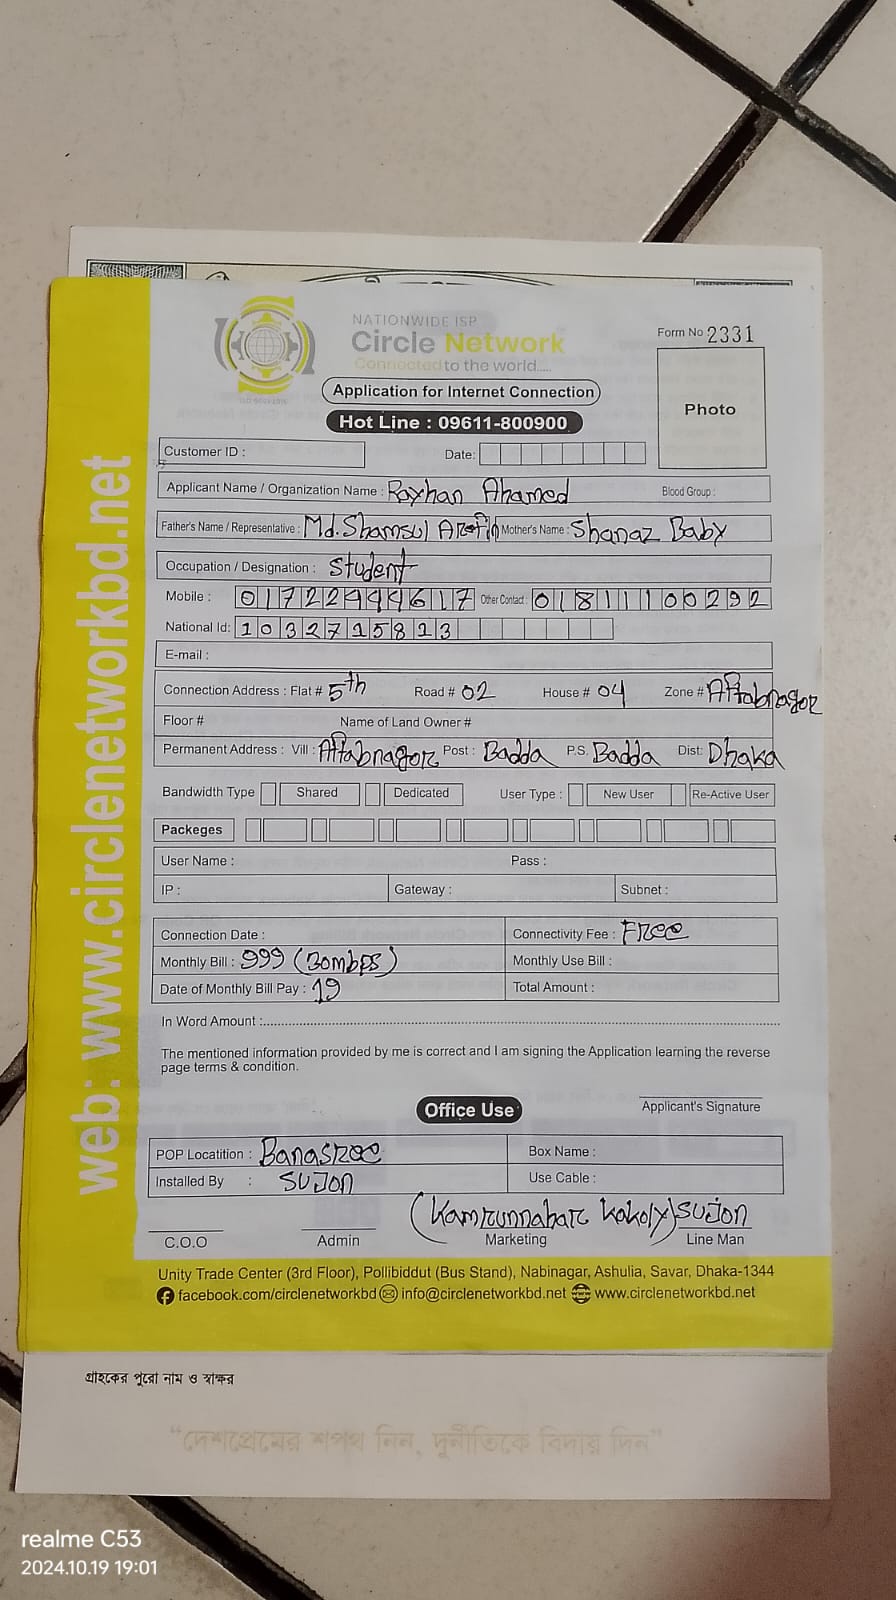 NATIONWIDE ISP
Circle Network
Connected to the world.....
Form No 2331
Photo
Application for Internet Connection
Hot Line : 09611-800900
Customer ID : Date:
Applicant Name / Organization Name : Rayhan Ahamed Blood Group :
Father's Name / Representative : Md. Shamsul Arefin Mother's Name : Shanaz Baby
Occupation / Designation : Student
Mobile : Other Contact : 01811100292
National Id: 1032715813
E-mail :
Connection Address : Flat # 5th Road # 02 House # 04 Zone # Aftabnagor
Floor # Name of Land Owner #
Permanent Address : Vill : Aftabnagor Post : Badda P.S. Badda Dist: Dhaka
Bandwidth Type Shared Dedicated User Type : New User Re-Active User
Packeges
User Name : Pass :
IP : Gateway : Subnet :
Connection Date : Connectivity Fee : Free
Monthly Bill : 999 (30mbps) Monthly Use Bill :
Date of Monthly Bill Pay : 19 Total Amount :
In Word Amount :
The mentioned information provided by me is correct and I am signing the Application learning the reverse
page terms & condition.
Office Use
Applicant's Signature
POP Locatition : Banasree Box Name :
Installed By : Sujon Use Cable :
(Kamrunnahar kakoly) Sujon
C.O.O Admin Marketing Line Man
Unity Trade Center (3rd Floor), Pollibiddut (Bus Stand), Nabinagar, Ashulia, Savar, Dhaka-1344
facebook.com/circlenetworkbd info@circlenetworkbd.net www.circlenetworkbd.net
web: www.circlenetworkbd.net
গ্রাহকের পুরো নাম ও স্বাক্ষর
“দেশপ্রেমের শপথ নিন, দুর্নীতিকে বিদায় দিন”
realme C53
2024.10.19 19:01